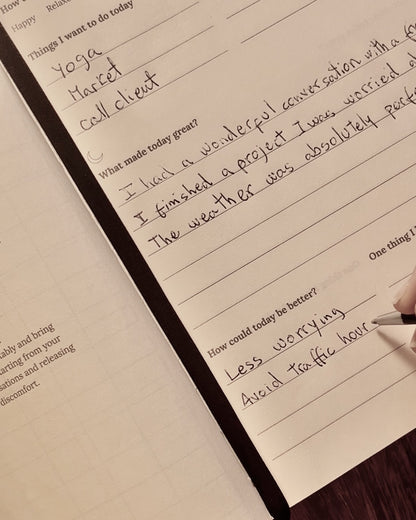 How
Happy Relaxed
Things I want to do today
Yoga
Market
Call client
What made today great?
I had a wonderful conversation with a
I finished a project I was worried
The weather was absolutely
How could today be better?
One thing I
Less worrying
Avoid traffic hour
and bring
starting from your
sations and releasing
discomfort.